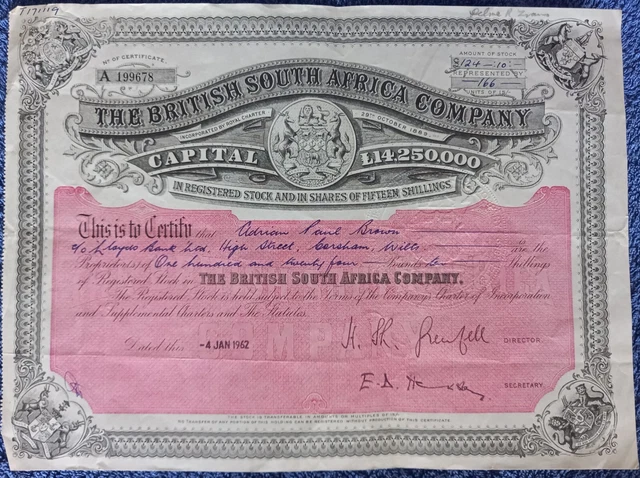 T171119
Nº OF CERTIFICATE.
A 199678
AMOUNT OF STOCK
£124–10:–
REPRESENTED BY
166
UNITS OF 15/-
THE BRITISH SOUTH AFRICA COMPANY
INCORPORATED BY ROYAL CHARTER 29TH OCTOBER 1889.
CAPITAL £14,250,000
IN REGISTERED STOCK AND IN SHARES OF FIFTEEN SHILLINGS
This is to Certify that Adrian Paul Brown
c/o Lloyds Bank Ltd, High Street, Corsham, Wilts is/are the
Proprietor(s) of One hundred and twenty four Pounds Shillings
of Registered Stock in THE BRITISH SOUTH AFRICA COMPANY.
The Registered Stock is held subject to the Terms of the Company's Charter of Incorporation
and Supplemental Charters and The Statutes.
Dated this -4 JAN 1962
DIRECTOR.
SECRETARY.
THE STOCK IS TRANSFERABLE IN AMOUNTS OR MULTIPLES OF 15/-
NO TRANSFER OF ANY PORTION OF THIS HOLDING CAN BE REGISTERED WITHOUT PRODUCTION OF THIS CERTIFICATE